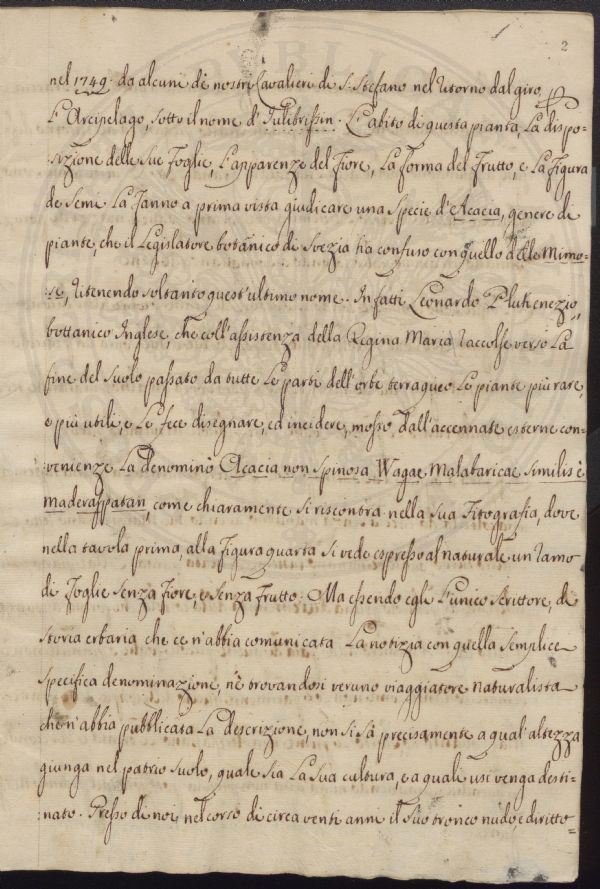 2
nel 1749. da alcuni de nostri Cavalieri di S. Stefano nel ritorno dal giro
L'Arcipelago, sotto il nome d'Tulibrissin. L'abito di questa pianta, La dispo-
sizione delle sue foglie, L'apparenze del Fiore, La forma del Frutto, e La figura
de Semi La fanno a prima vista giudicare una specie d'Acacia, genere di
piante, che il Legislatore botanico di Svezia ha confuso con quello delle Mimo-
:se, ritenendo soltanto quest'ultimo nome. Infatti Leonardo Plukenezio,
bottanico Inglese, che coll'assistenza della Regina Maria raccolse verso La
fine del Suolo passato da tutte Le parti dell'orbe terraqueo Le piante più rare,
e più utili, e Le fece disegnare, ed incidere, mosso dall'accennate esterne con-
:venienze La denominò Acacia non spinosa Wagae Malabaricae similis è
Maderaspatan, come chiaramente si riscontra nella sua Fitografia, dove
nella tavola prima, alla figura quarta si vede espresso al naturale un ramo
di foglie senza fiore, e senza frutto. Ma essendo egli L'unico Scrittore di
storia erbaria che ce n'abbia comunicata La notizia con quella semplice
specifica denominazione, nè trovandosi veruno viaggiatore naturalista
che n'abbia pubblicata La descrizione, non si sà precisamente a qual'altezza
giunga nel patrio suolo, quale sia La sua cultura, e a quali usi venga desti-
:nato. Presso di noi, nel corso di circa venti anni il suo tronco nudo, e diritto